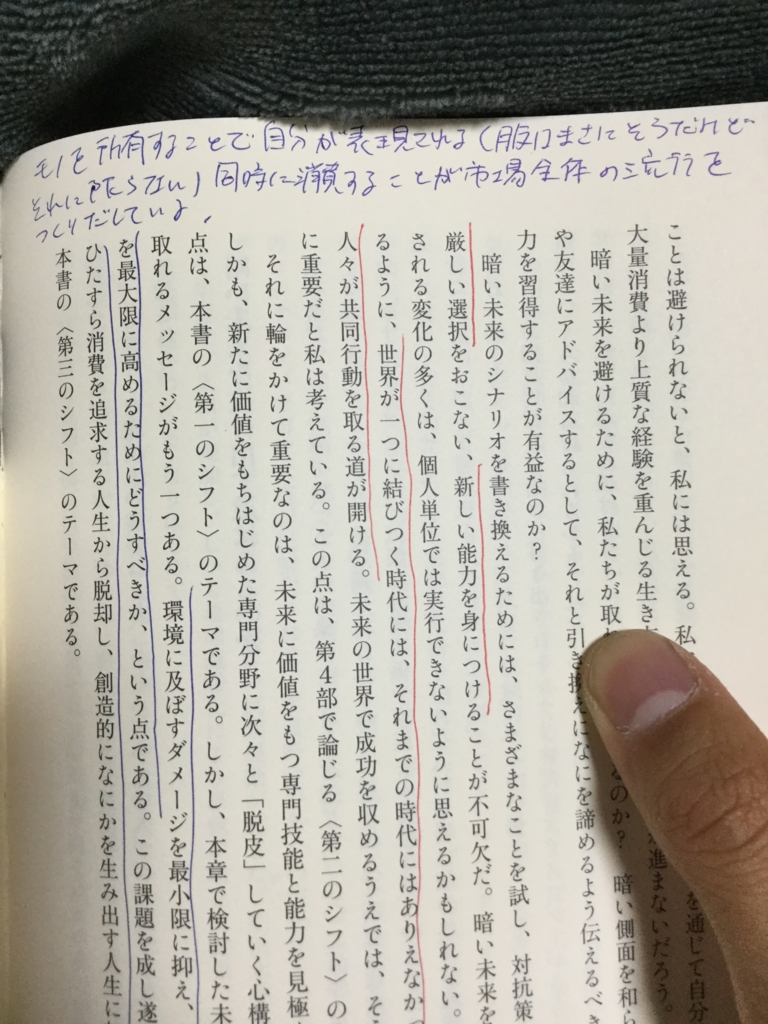 モノを所有することで自分が表現される（服はまさにそうだけど
それに限らない）同時に消費することが市場全体の流行を
つくりだしている。
ことは避けられないと、私には思える。私 を通じて自分
大量消費より上質な経験を重んじる生き方 が進まないだろう。
暗い未来を避けるために、私たちが取れ るのか？ 暗い側面を和ら
や友達にアドバイスするとして、それと引き換えになにを諦めるよう伝えるべき
力を習得することが有益なのか？
暗い未来のシナリオを書き換えるためには、さまざまなことを試し、対抗策
厳しい選択をおこない、新しい能力を身につけることが不可欠だ。暗い未来を
される変化の多くは、個人単位では実行できないように思えるかもしれない。
るように、世界が一つに結びつく時代には、それまでの時代にはありえなかっ
人々が共同行動を取る道が開ける。未来の世界で成功を収めるうえでは、そう
に重要だと私は考えている。この点は、第4部で論じる〈第二のシフト〉の
それに輪をかけて重要なのは、未来に価値をもつ専門技能と能力を見極
しかも、新たに価値をもちはじめた専門分野に次々と「脱皮」していく心構
点は、本書の〈第一のシフト〉のテーマである。しかし、本章で検討した未
取れるメッセージがもう一つある。環境に及ぼすダメージを最小限に抑え、
を最大限に高めるためにどうすべきか、という点である。この課題を成し遂
ひたすら消費を追求する人生から脱却し、創造的になにかを生み出す人生に
本書の〈第三のシフト〉のテーマである。